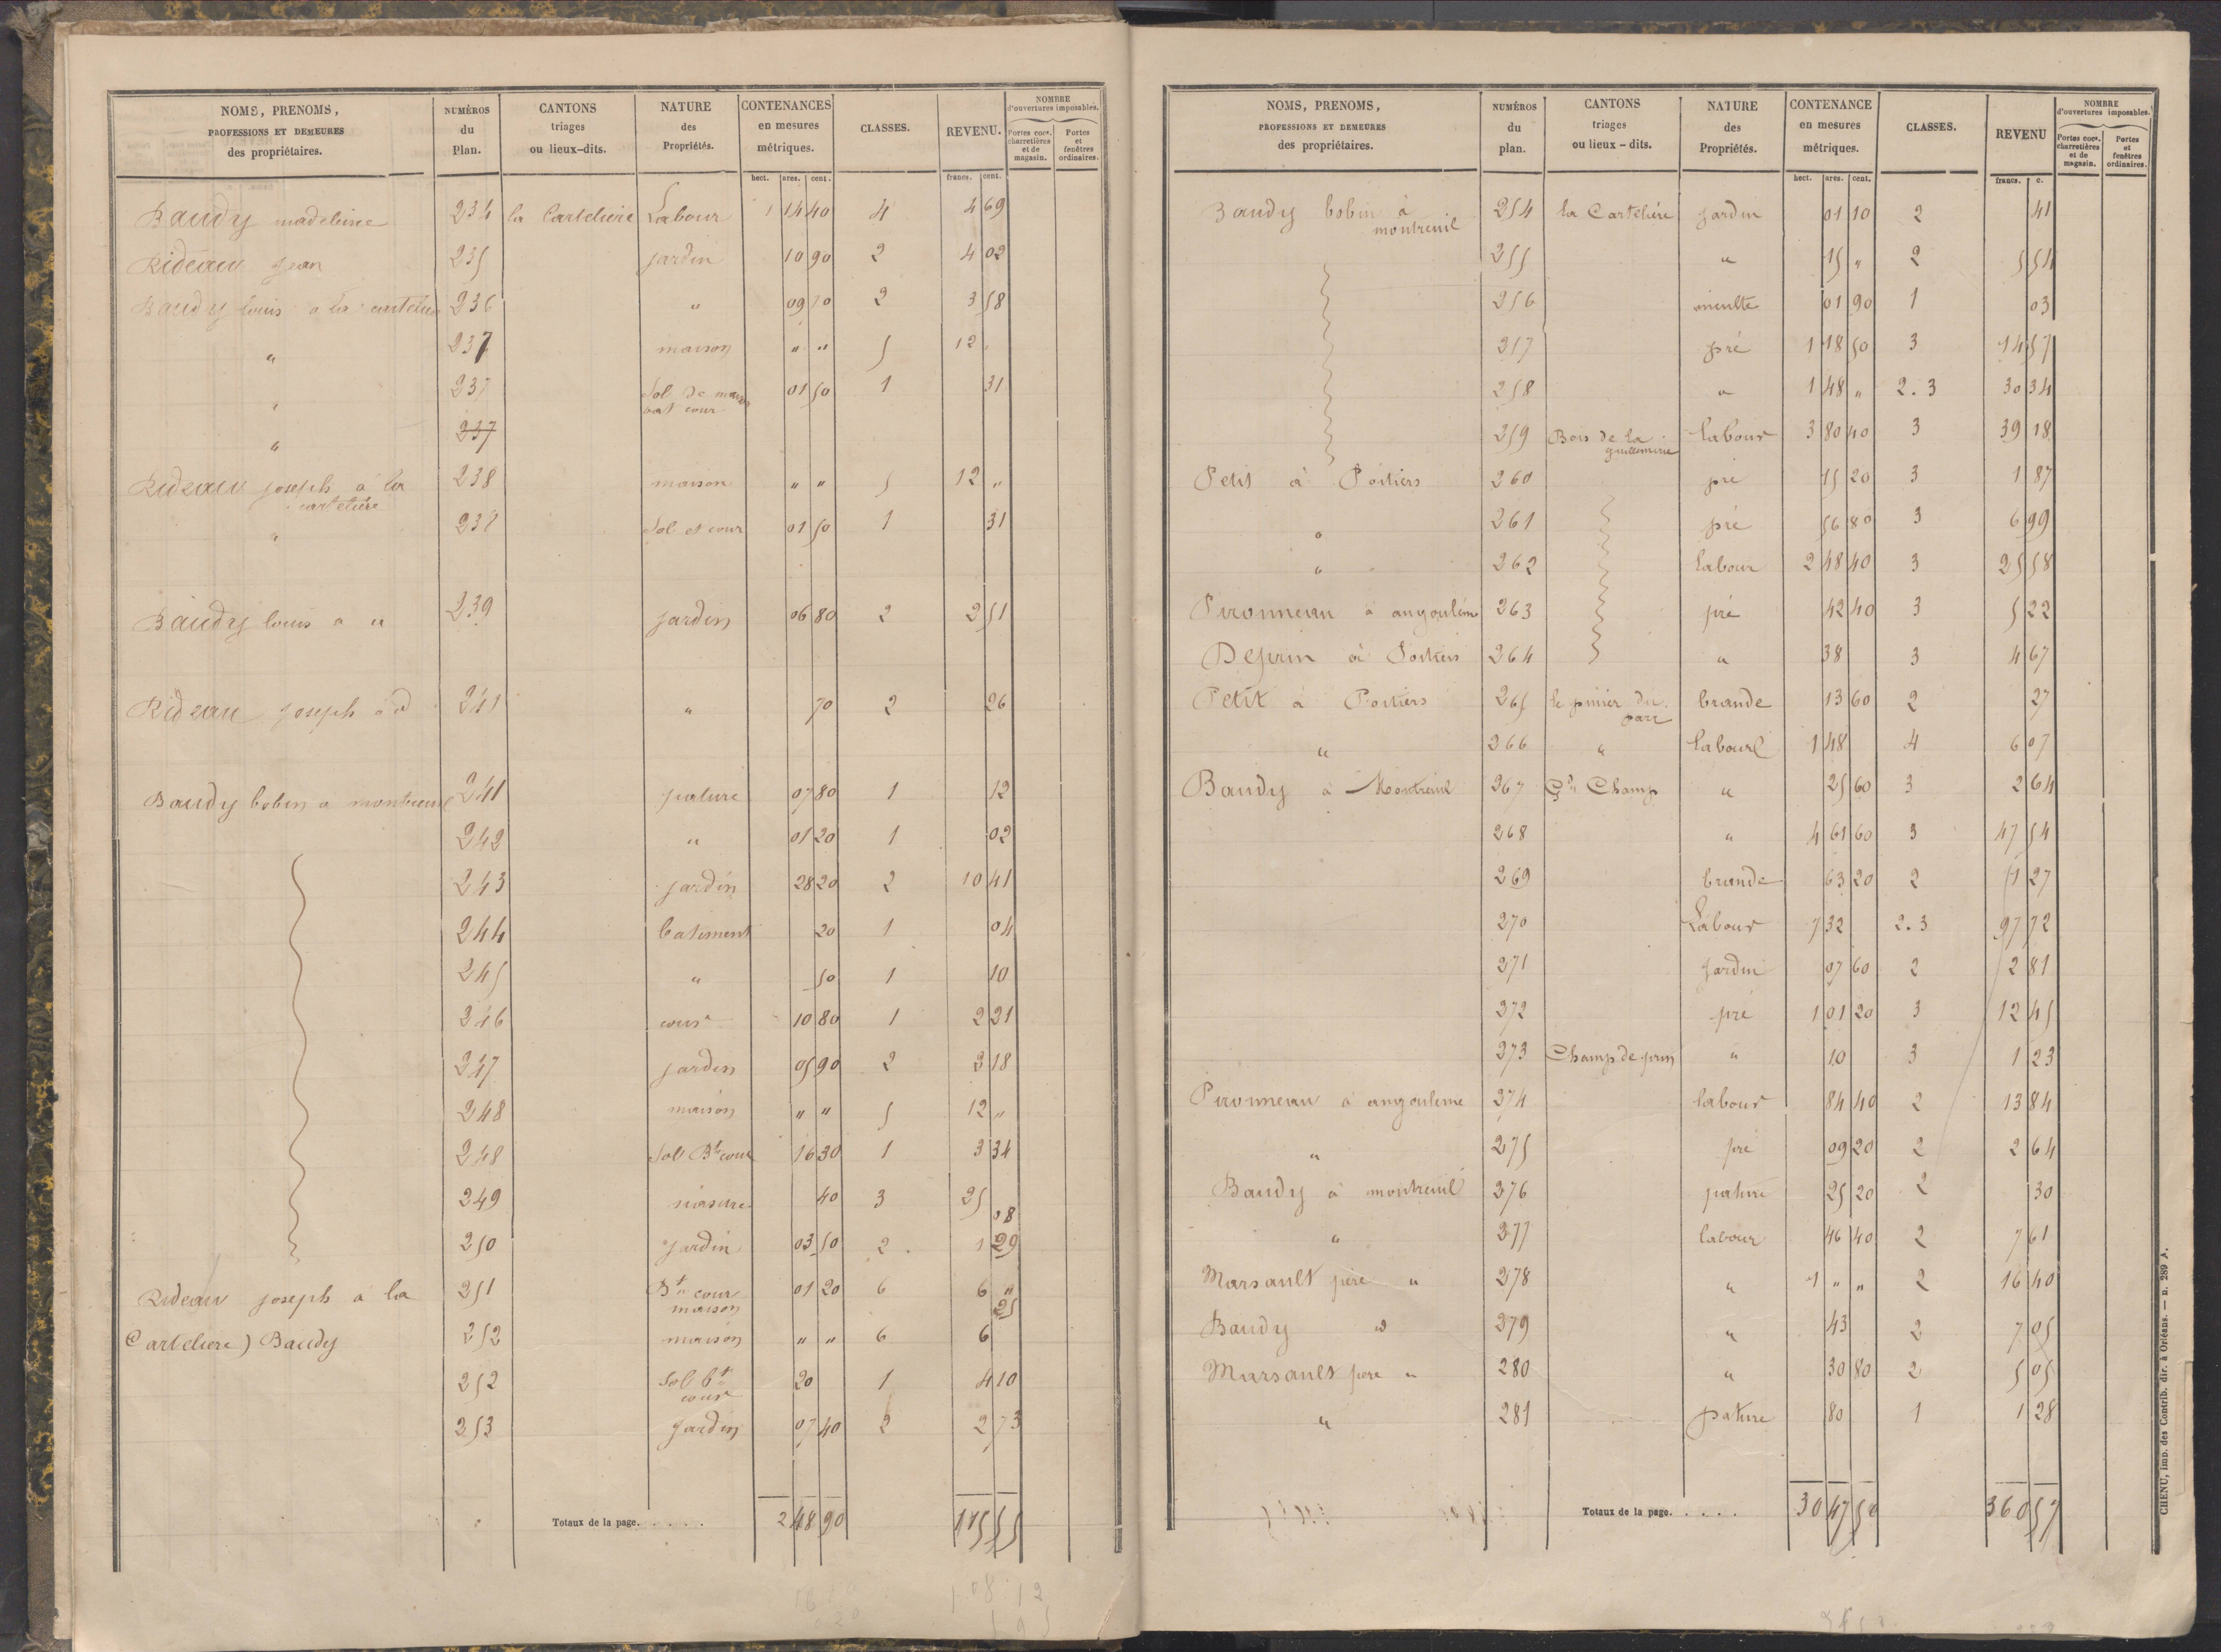 NOMS, PRENOMS, PROFESSIONS ET DEMEURES des propriétaires. | NUMÉROS du Plan. | CANTONS triages ou lieux-dits. | NATURE des Propriétés. | CONTENANCES en mesures métriques. | CLASSES. | REVENU. | NOMBRE d'ouvertures imposables. | Portes coch. charretières et de magasin. | Portes et fenêtres ordinaires.
hect. | ares. | cent. | francs. | cent.
Baudy madeleine 234 la Cartelière Labour 1 14 40 4 4 69
Rideau Jean 235 jardin 10 90 2 4 02
Baudy louis a la cartelière 236 " 09 70 2 3 58
" 237 maison " " 5 12 "
" 237 Sol de maison bat cour 01 50 1 31
" 237
Rideau joseph à la cartelière 238 maison " " 5 12 "
" 238 Sol et cour 01 50 1 31
Baudy louis a " 239 jardin 06 80 2 2 51
Rideau joseph a d 241 " 70 2 26
Baudy bobin a montreuil 241 pature 07 80 1 12
242 " 01 20 1 02
243 jardin 28 20 2 10 41
244 batiment 20 1 04
245 " 50 1 10
246 cour 10 80 1 2 21
247 jardin 05 90 2 2 18
248 maison " " 5 12 "
248 Sol Bt cour 16 30 1 3 34
249 masure 40 3 25 08
250 Jardin 03 50 2 1 29
Rideau joseph a la 251 Bt cour maison 01 20 6 6 " 25
Carteliere) Baudy 252 maison " " 6 6
252 Sol bt cour 20 1 4 10
253 Jardin 07 40 2 2 73
Totaux de la page. . . . . . 2 48 90 115 55
NOMS, PRENOMS, PROFESSIONS ET DEMEURES des propriétaires. | NUMÉROS du plan. | CANTONS triages ou lieux-dits. | NATURE des Propriétés. | CONTENANCE en mesures métriques. | CLASSES. | REVENU | NOMBRE d'ouvertures imposables. | Portes coch. charretières et de magasin. | Portes et fenêtres ordinaires.
hect. | ares. | cent. | francs. | c.
Baudy bobin à montreuil 254 la Cartelière jardin 01 10 2 41
255 " 15 " 2 5 54
256 inculte 01 90 1 03
257 pré 1 18 50 3 14 57
258 " 1 48 " 2.3 30 34
259 Bois de la guillemerie labour 3 80 40 3 39 18
Petit à Poitiers 260 pré 15 20 3 1 87
" 261 pré 56 80 3 6 99
" 262 labour 2 48 40 3 25 58
Pironneau à angoulême 263 pré 42 40 3 5 22
Deprin à Poitiers 264 " 38 3 4 67
Petit à Poitiers 265 le pinier du parc brande 13 60 2 27
" 266 " labour 1 48 4 6 07
Baudy à Montreuil 267 Gd Champ " 25 60 3 2 64
268 " 4 61 60 3 47 54
269 brande 63 20 2 1 27
270 Labour 7 32 2.3 97 72
271 Jardin 07 60 2 2 81
272 pré 1 01 20 3 12 45
273 Champ de prin " 10 3 1 23
Pironneau à angouleme 274 labour 84 40 2 13 84
" 275 pré 09 20 2 2 64
Baudy à montreuil 276 pature 25 20 2 30
" 277 labour 46 40 2 7 61
Marsault père " 278 " 1 " " 2 16 40
Baudy d 279 " 43 2 7 05
Marsault père " 280 " 30 80 2 5 05
" 281 pature 80 1 1 28
Totaux de la page. . . . . 30 47 50 360 57
CHENU, imp. des Contrib. dir. à Orléans. — n. 289 A.